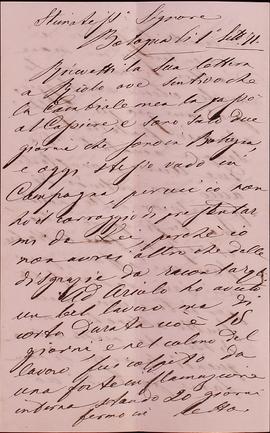 Stimatess.º Signore
Bologna li 1º Sett.
Ricevetti la sua lettera
a Riolo ove sentivo che
la Cambiale mea la passò
al Cassiere, e sono solo due
giorni che sono in Bologna,
e oggi stesso vado in
Campagna, per cui io non
ho il corraggio di presentar
mi da Lei, perchè io
non avrei altro che delle
disgrazie da racontargli
Ad Ariolo ho avuto
un bel lavoro ma di
corta durata cioè 15
giorni, e nel colmo del
lavoro, fui colpito da
una forte inflamazione
interna stando 20 giorni
fermo in letto